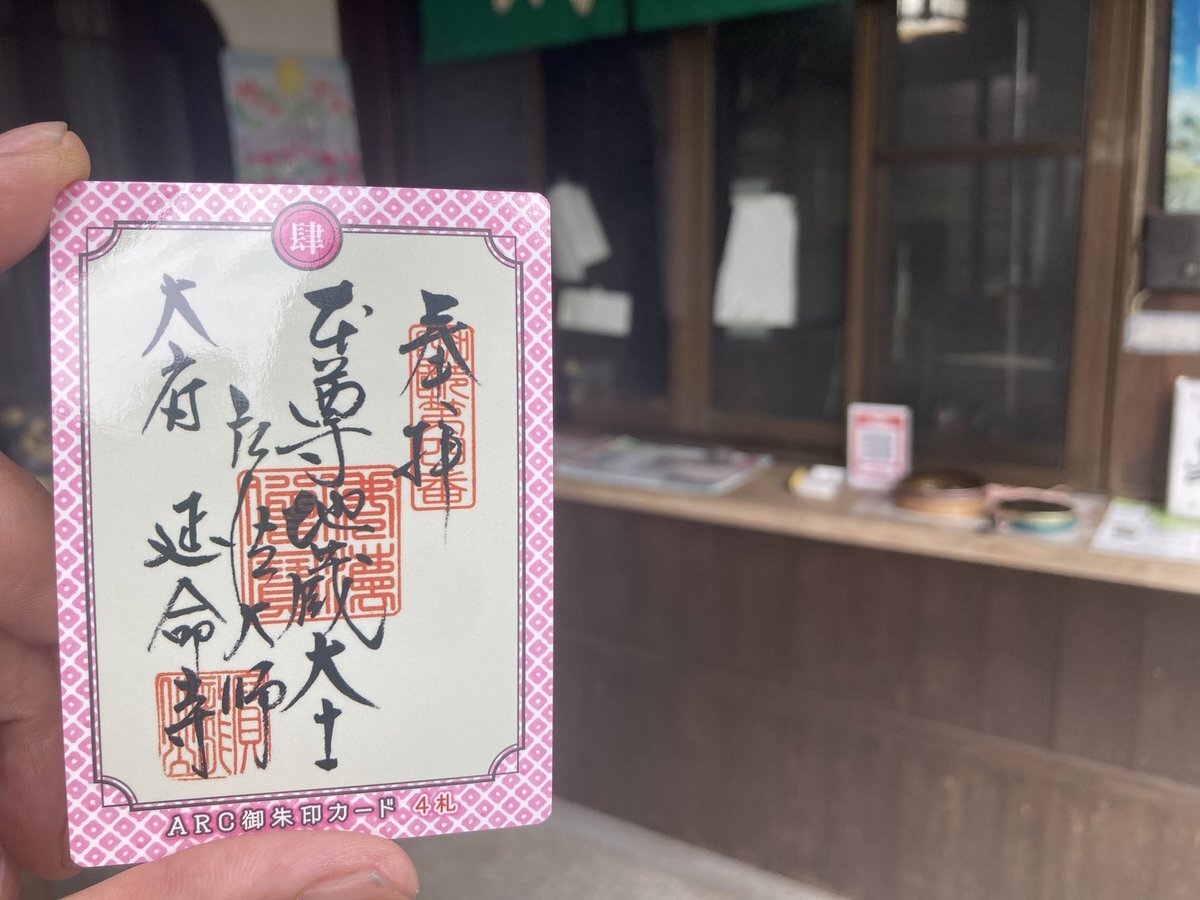 肆
奉拝
本尊地蔵大士
弘法大師
大府 延命寺
ARC御朱印カード 4札